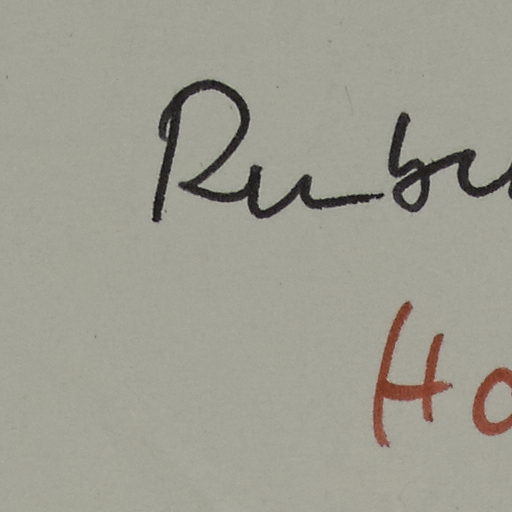 Rubu
Ho